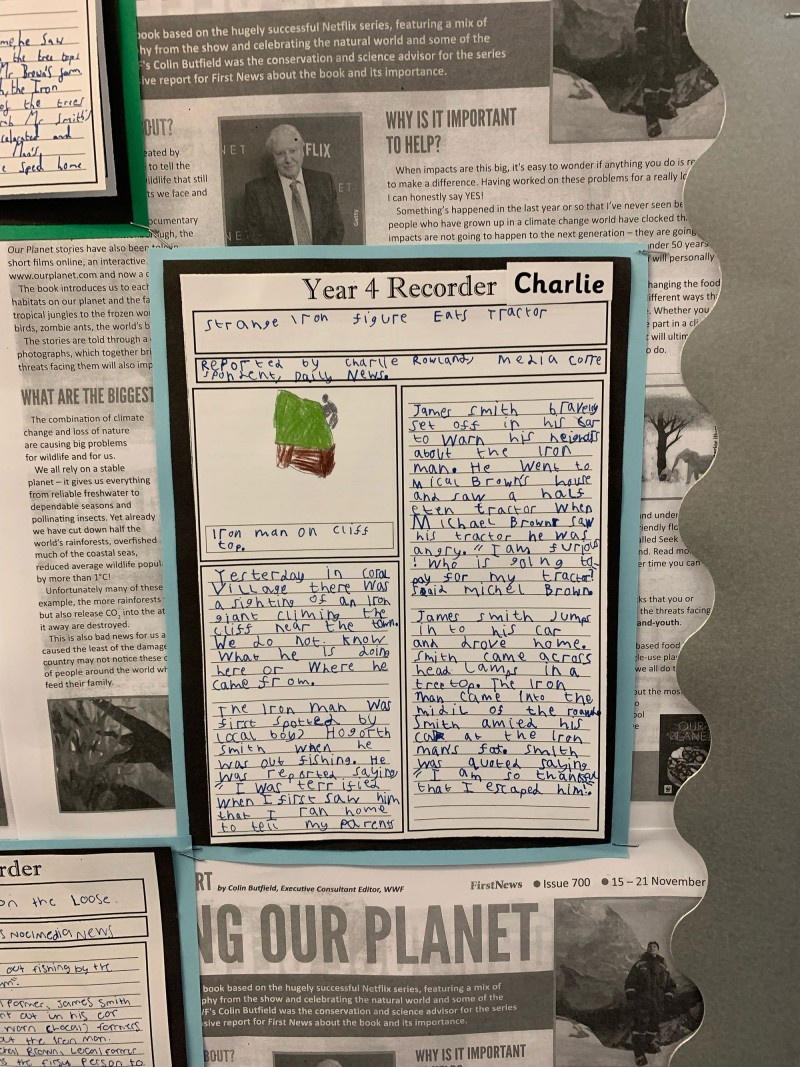 me he saw
the tree tops
Mr Brown's farm
the Iron
of the trees
Mr Smith's
and
Man's
sped home
book based on the hugely successful Netflix series, featuring a mix of
hy from the show and celebrating the natural world and some of the
F's Colin Butfield was the conservation and science advisor for the series
ive report for First News about the book and its importance.
OUT?
eated by
to tell the
ildlife that still
ts we face and
ocumentary
ough, the
NET
FLIX
ET
NE
Getty
WHY IS IT IMPORTANT
TO HELP?
When impacts are this big, it's easy to wonder if anything you do is re
to make a difference. Having worked on these problems for a really lo
I can honestly say YES!
Something's happened in the last year or so that I've never seen be
people who have grown up in a climate change world have clocked th
impacts are not going to happen to the next generation – they are going
nder 50 years
will personally
hanging the food
ifferent ways th
. Whether you
part in a cli
will ultim
o do.
Our Planet stories have also been
short films online, an interactive
www.ourplanet.com and now a
The book introduces us to each
habitats on our planet and the fa
tropical jungles to the frozen wo
birds, zombie ants, the world's b
The stories are told through a
photographs, which together bri
threats facing them will also imp
WHAT ARE THE BIGGEST
The combination of climate
change and loss of nature
are causing big problems
for wildlife and for us.
We all rely on a stable
planet – it gives us everything
from reliable freshwater to
dependable seasons and
pollinating insects. Yet already
we have cut down half the
world's rainforests, overfished
much of the coastal seas,
reduced average wildlife popul
by more than 1°C!
Unfortunately many of these
example, the more rainforests
but also release CO₂ into the at
it away are destroyed.
This is also bad news for us a
caused the least of the damage
country may not notice these c
of people around the world wh
feed their family.
Year 4 Recorder
Charlie
Strange Iron figure Eats Tractor
Reported by Charlie Rowland, Media Corre
spondent, Daily News.
Iron man on Cliff
top.
Yesterday in coral
Village there was
a sighting of an Iron
giant climing the
cliff near the town.
We do not know
What he is doing
here or Where he
came from.
The Iron man was
first spotted by
Local boy) Hogorth
Smith when he
was out fishing. He
was reported saying
"I was terrified
When I first saw him
that I ran home
to tell my parents
James smith bravely
set off in his car
to warn his neighbors
about the Iron
man. He went to
Mical Brown's house
and saw a half
eten tractor When
Michael Browns saw
his tractor he was
angry. "I am furious
! Who is going to
pay for my tractor!
Said Michel Brown
James smith Jumps
in to his car
and drove home.
Smith came across
head Lamps in a
treetop. The Iron
man came into the
midil of the road
Smith amied his
car at the Iron
mans fot. Smith
was quoted saying
"I am so thankful
that I escaped him".
nd under
riendly flo
lled Seek
nd. Read mo
er time you can
ks that you or
the threats facing
and-youth.
based food
le-use pla
we all do t
out the mos
o
ool
OUR
PLANET
rder
on the Loose.
s Noelmedia News
out fishing by the
Farmer, James Smith
out in his car
warn (Local) farmers
out the Iron man.
Brown, Local farmer
the first person to
RT by Colin Butfield, Executive Consultant Editor, WWF
FirstNews ● Issue 700 ● 15 – 21 November
NG OUR PLANET
book based on the hugely successful Netflix series, featuring a mix of
phy from the show and celebrating the natural world and some of the
F's Colin Butfield was the conservation and science advisor for the series
sive report for First News about the book and its importance.
BOUT?
WHY IS IT IMPORTANT